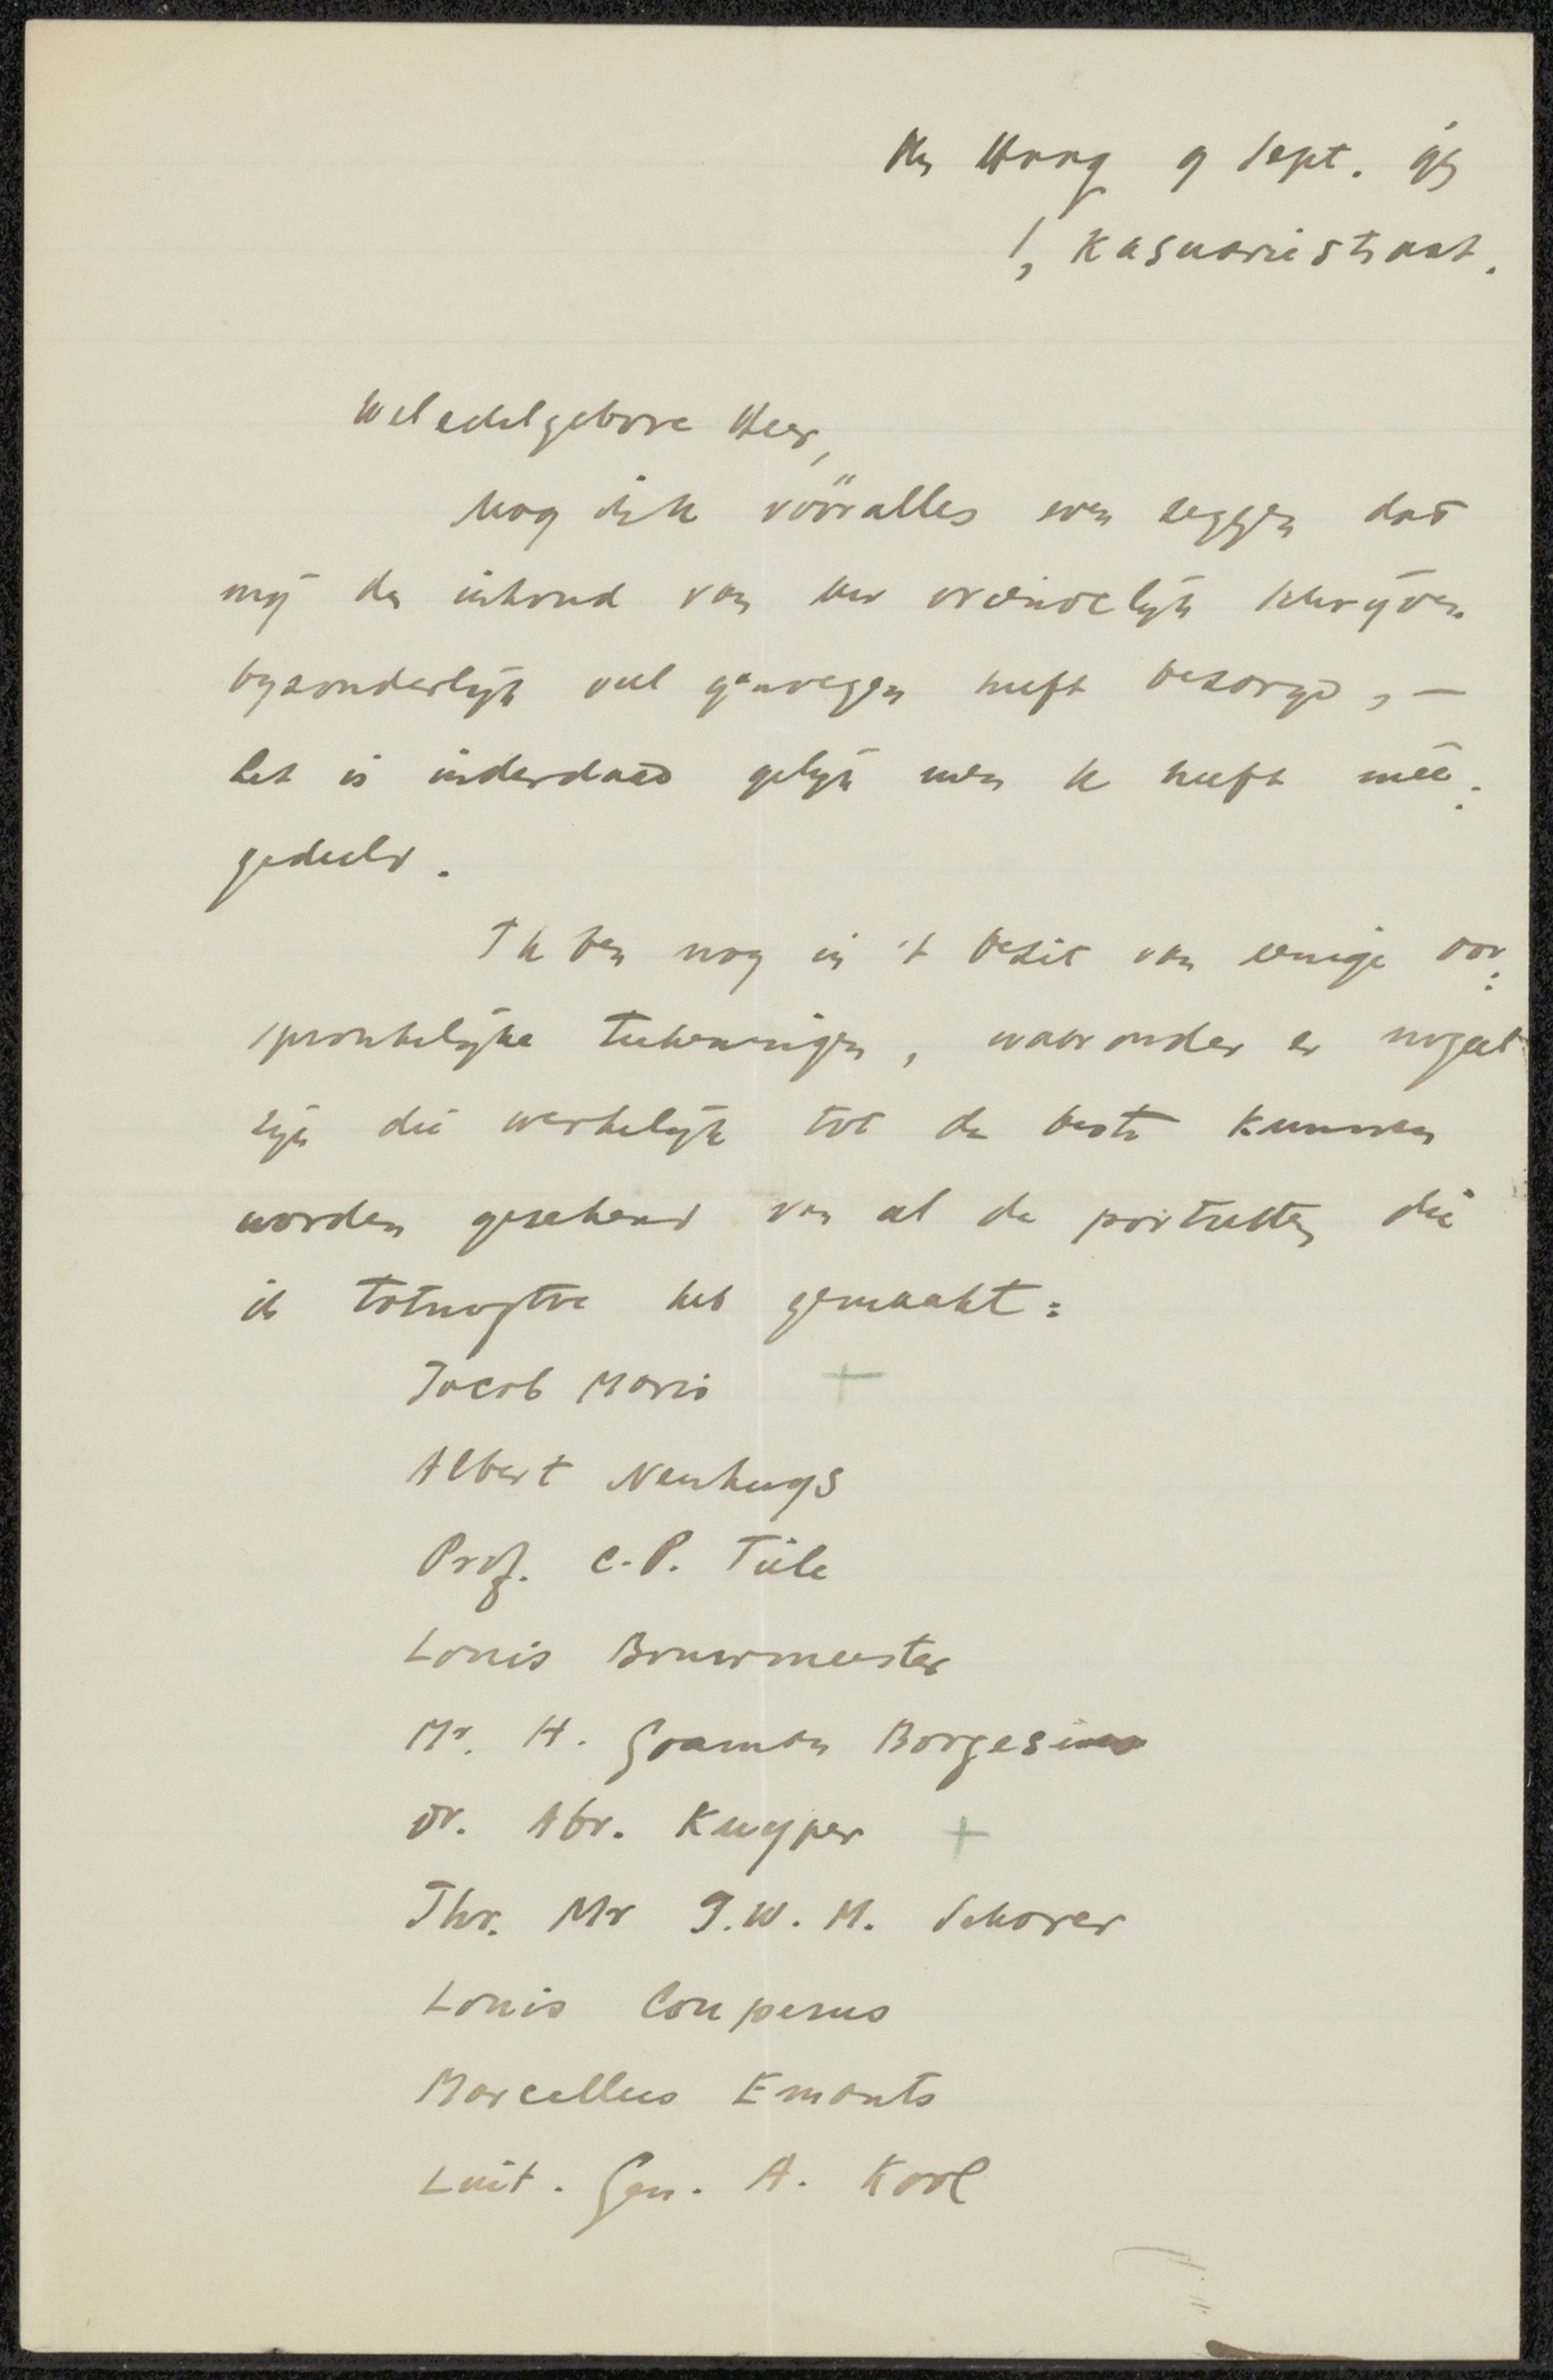 Den Haag 9 Sept. '98
1, Kasuariestraat.
Weledelgebore Heer,
Mag ik vóóralles even zeggen dat
mij de inhoud van uw vriendelijk schrijven
byzonderlijk veel genoegen heeft bezorgd, —
het is inderdaad gelijk men U heeft mee:
gedeeld.
Ik ben nog in 't bezit van eenige oor:
spronkelijke teekeningen, waaronder er nogal
zijn die werkelijk tot de beste kunnen
worden gerekend van al de portretten die
ik totnogtoe heb gemaakt:
Jacob Maris +
Albert Neuhuys
Prof. C. P. Tiele
Louis Bouwmeester
Mr. H. Goeman Borgesius
Dr. Abr. Kuyper +
Jhr. Mr J. W. M. Schorer
Louis Couperus
Marcellus Emants
Luit. Gen. A. Kool